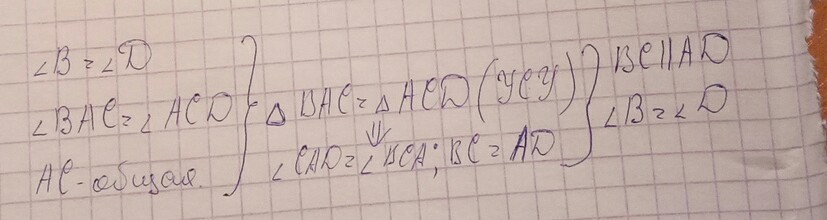 ∠B = ∠D
∠BAC = ∠ACD
AC - общая.
△ BAC = △ ACD (УСУ)
⇓
∠CAD = ∠BCA; BC = AD
BC || AD
∠B = ∠D